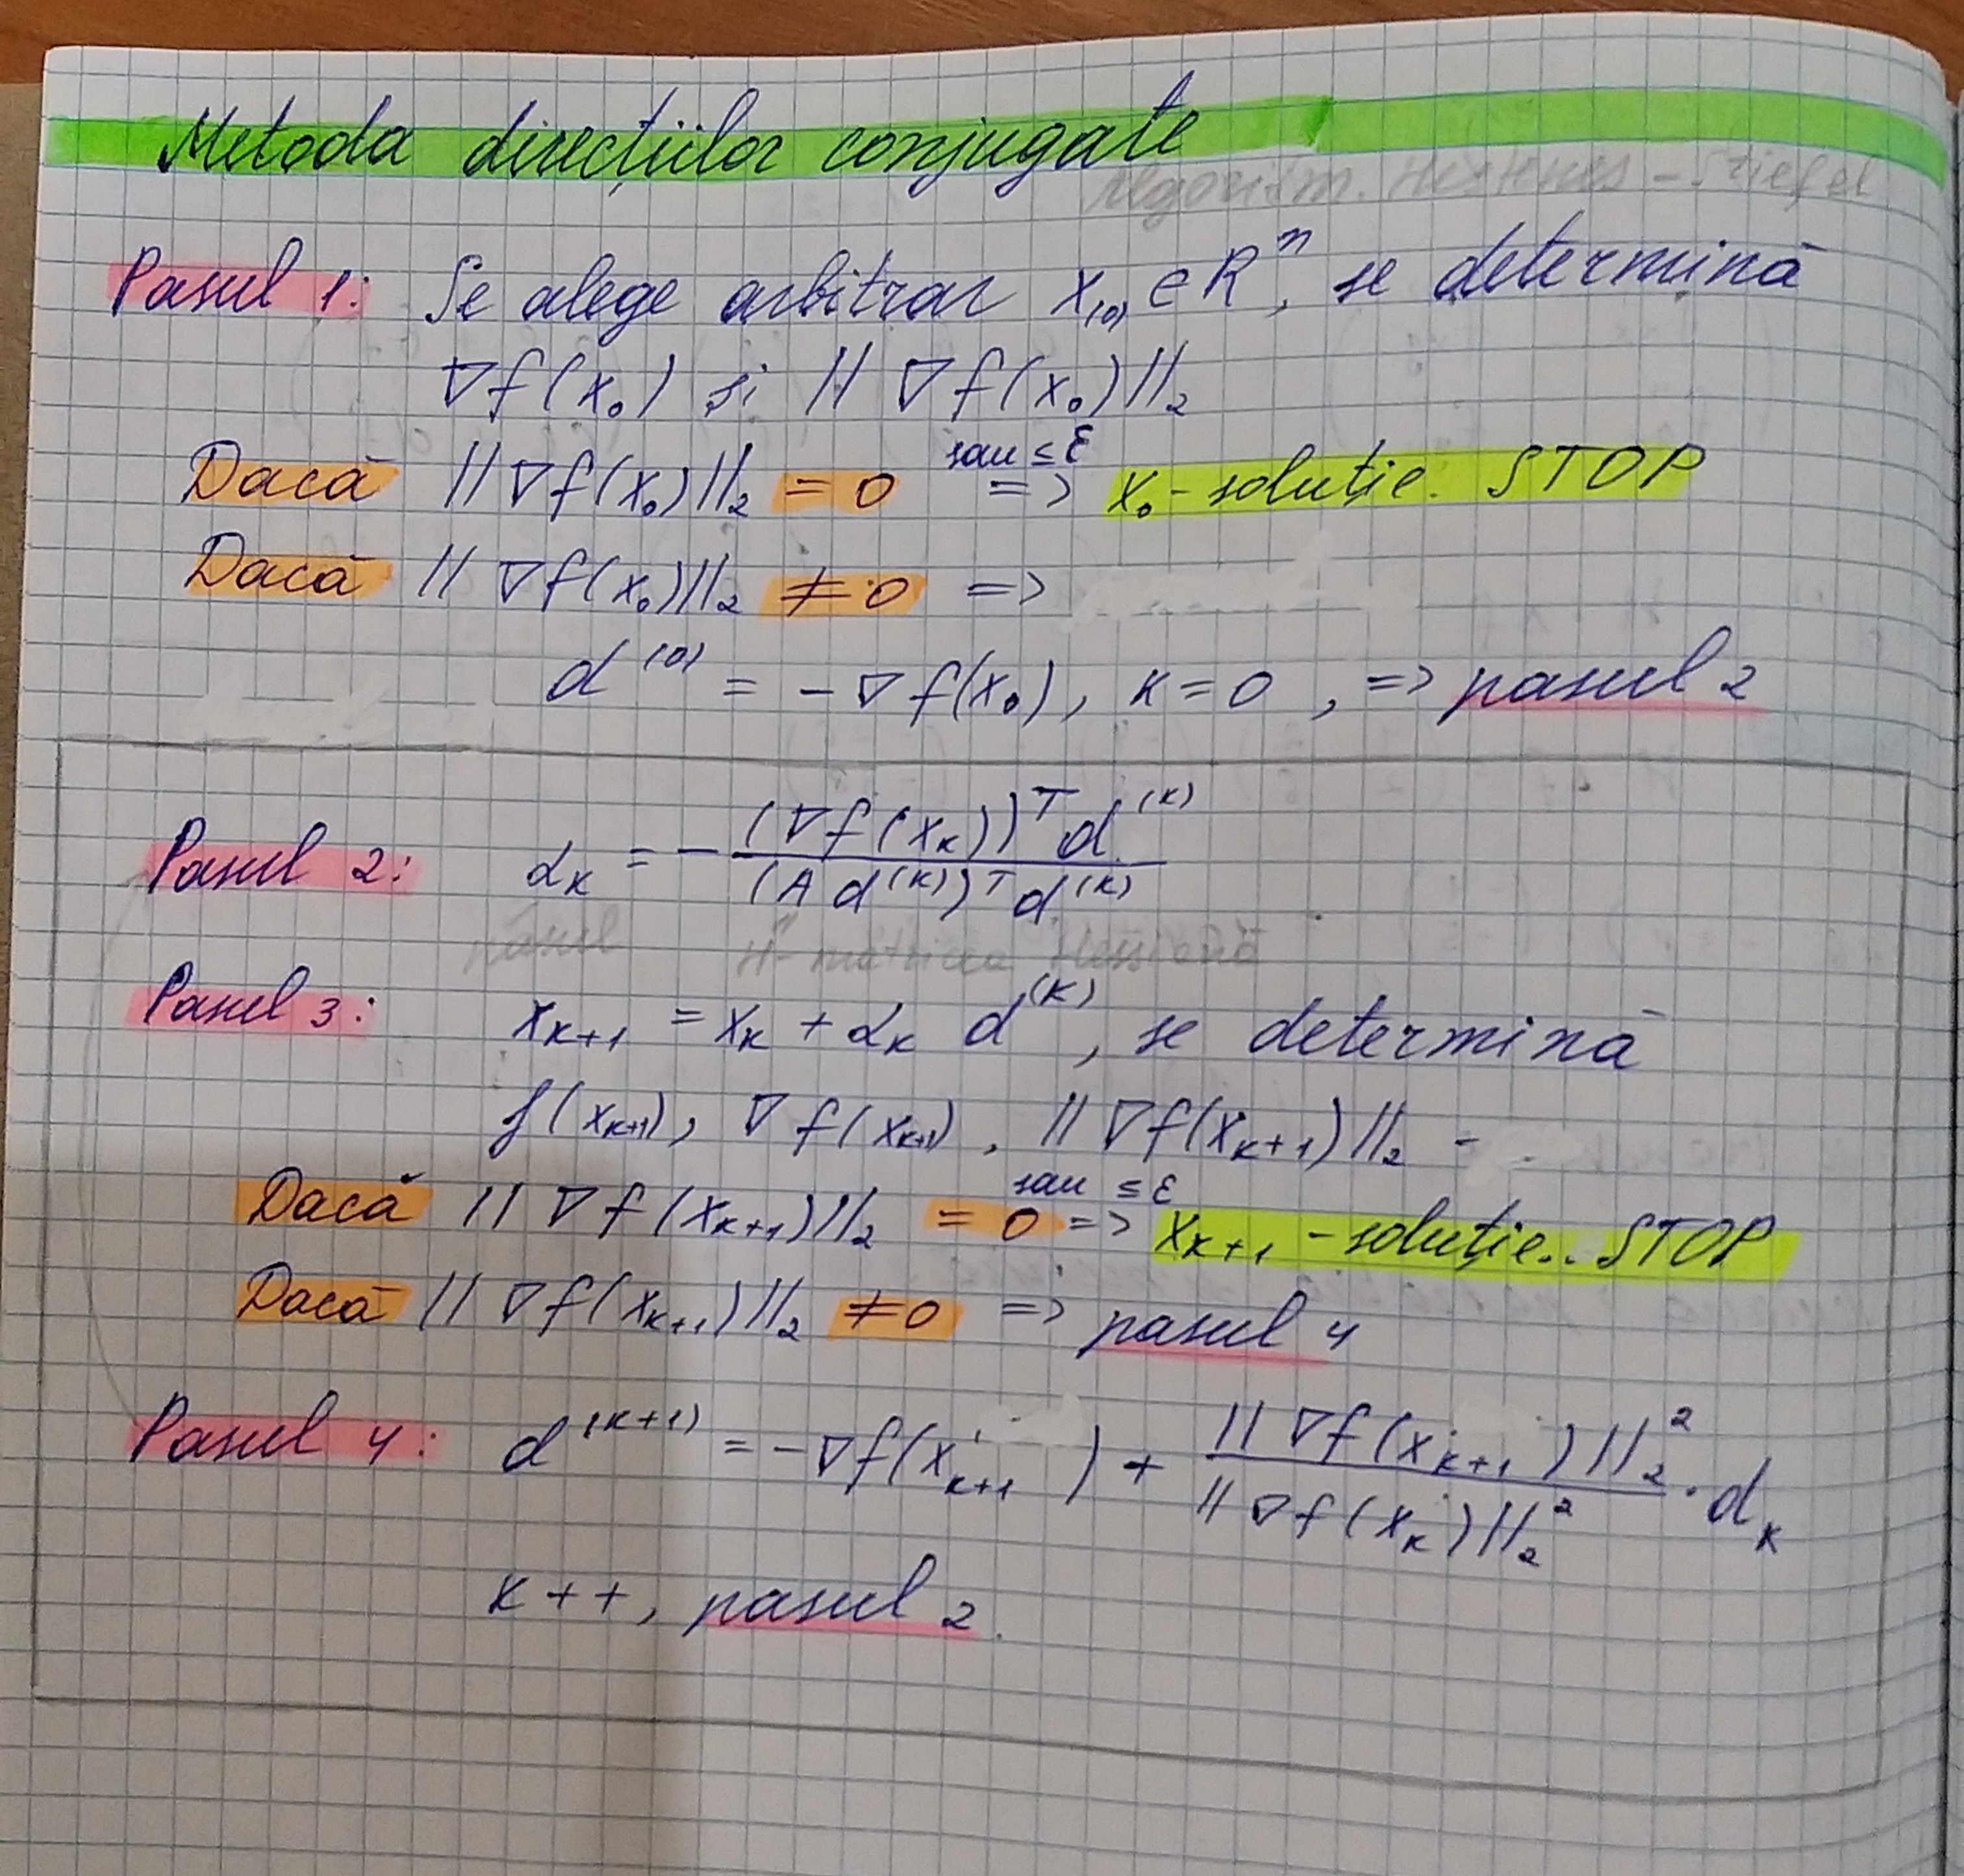 Metoda direcțiilor conjugate
Algoritm. Hestenes - Stiefel
Pasul 1: Se alege arbitrar x₍₀₎ ∈ Rⁿ, se determină
∇f(x₀) și ||∇f(x₀)||₂
Dacă ||∇f(x₀)||₂ = 0 sau ≤ ε => x₀ - soluție. STOP
Dacă ||∇f(x₀)||₂ ≠ 0 =>
d⁽⁰⁾ = -∇f(x₀), k = 0, => pasul 2
Pasul 2: αₖ = - (∇f(xₖ))ᵀ d⁽ᵏ⁾ / (A d⁽ᵏ⁾)ᵀ d⁽ᵏ⁾
pasul H - matricea Hessiană
Pasul 3: xₖ₊₁ = xₖ + αₖ d⁽ᵏ⁾, se determină
f(xₖ₊₁), ∇f(xₖ₊₁), ||∇f(xₖ₊₁)||₂ -
Dacă ||∇f(xₖ₊₁)||₂ = 0 sau ≤ ε => xₖ₊₁ - soluție. STOP
Dacă ||∇f(xₖ₊₁)||₂ ≠ 0 => pasul 4
Pasul 4: d⁽ᵏ⁺¹⁾ = -∇f(xₖ₊₁) + ||∇f(xₖ₊₁)||₂² / ||∇f(xₖ)||₂² · dₖ
k++, pasul 2.